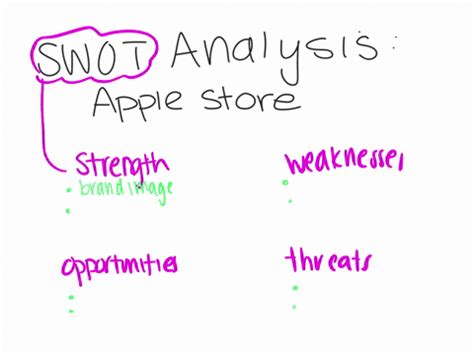 SWOT Analysis:
Apple store
Strength
• brand image
•
weaknesses
•
•
opportunities
•
•
threats
•
•